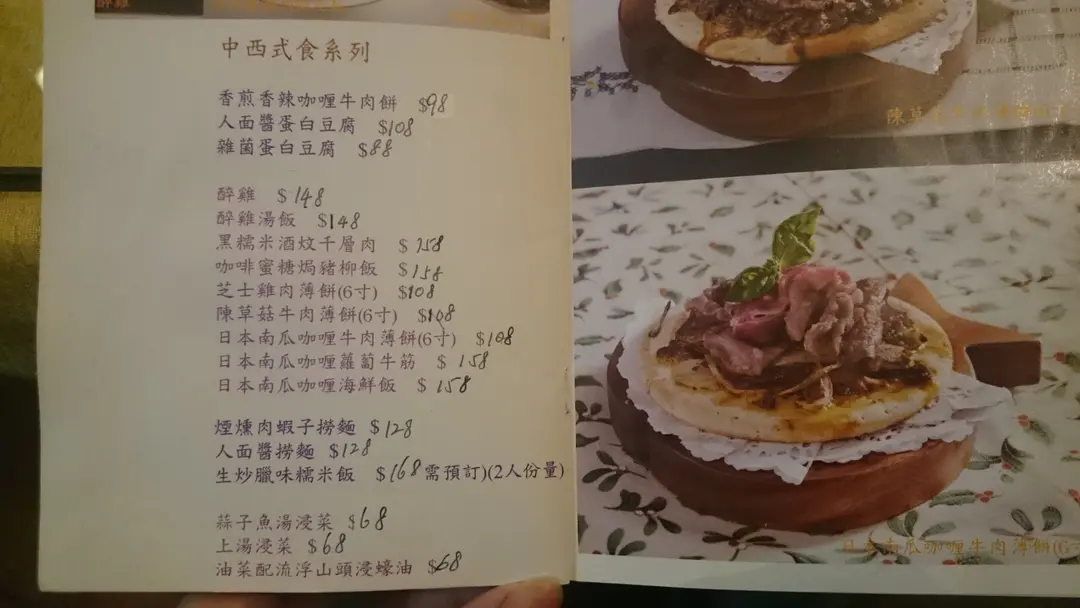 醉雞
中西式食系列
香煎香辣咖喱牛肉餅 $98
人面醬蛋白豆腐 $108
雜菌蛋白豆腐 $88
醉雞 $148
醉雞湯飯 $148
黑糯米酒炆千層肉 $158
咖啡蜜糖焗豬柳飯 $158
芝士雞肉薄餅(6寸) $108
陳草菇牛肉薄餅(6寸) $108
日本南瓜咖喱牛肉薄餅(6寸) $108
日本南瓜咖喱蘿蔔牛筋 $158
日本南瓜咖喱海鮮飯 $158
煙燻肉蝦子撈麵 $128
人面醬撈麵 $128
生炒臘味糯米飯 $168需預訂)(2人份量)
蒜子魚湯浸菜 $68
上湯浸菜 $68
油菜配流浮山頭浸蠔油 $68
日本南瓜咖喱牛肉薄餅(6寸